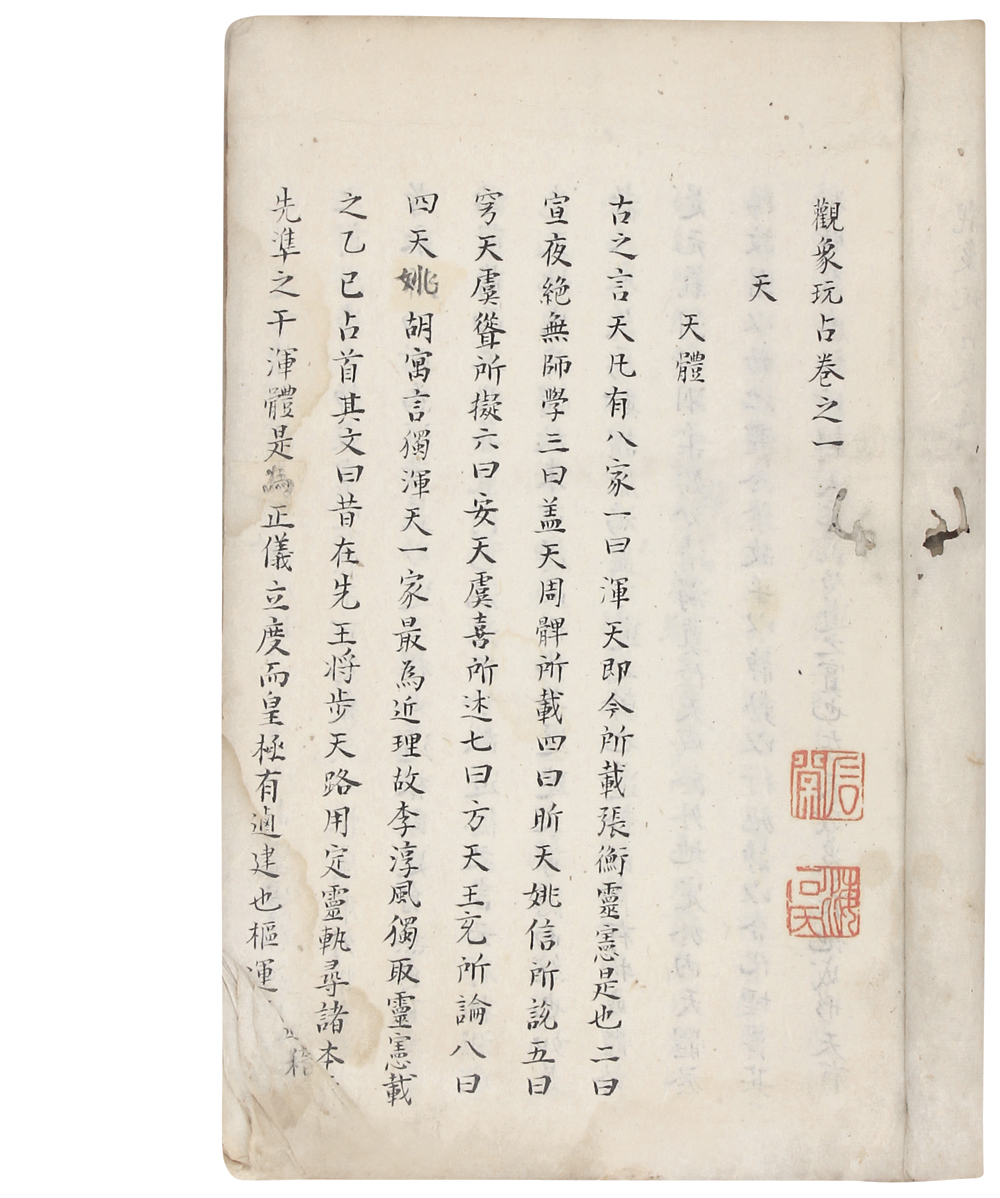 觀象玩占卷之一
天
天體
古之言天凡有八家一曰渾天即今所載張衡靈憲是也二曰
宣夜絕無師學三曰盖天周髀所載四曰昕天姚信所說五曰
穹天虞聳所擬六曰安天虞喜所述七曰方天王充所論八曰
四天姚胡寓言獨渾天一家最為近理故李淳風獨取靈憲載
之乙巳占首其文曰昔在先王将步天路用定靈軌尋諸本
先準之于渾體是為正儀立度而皇極有逌建也樞運
稽